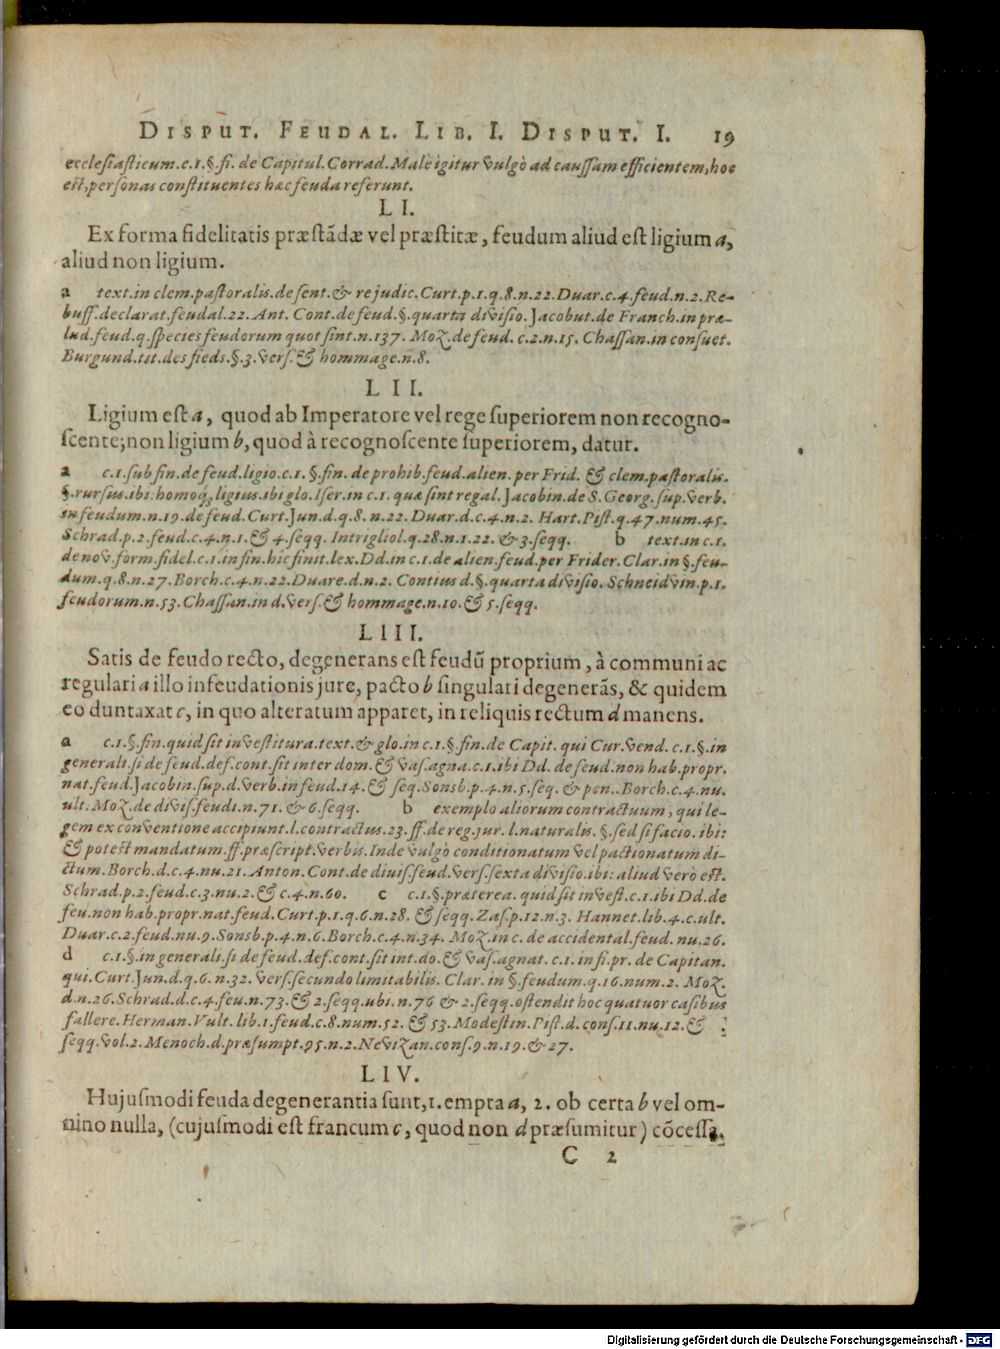 DISPUT. FEUDAL. LIB. I. DISPUT. I. 19
ecclesiasticum.c.1.§.fi. de Capitul. Corrad. Male igitur vulgò ad caussam efficientem, hoc
est, personas constituentes hæc feuda referunt.
LI.
Ex forma fidelitatis præstãdæ vel præstitæ, feudum aliud est ligium a,
aliud non ligium.
a text. in clem. pastoralis. de sent. & re judic. Curt. p.1. q.8. n.22. Duar. c.4. feud. n.2. Re-
buff. declarat. feudal. 22. Ant. Cont. de feud. §. quarta divisio. Jacobut. de Franch. in præ-
lud. feud. q. species feudorum quot sint. n.137. Moz. de feud. c.2. n.15. Chassan. in consuet.
Burgund. tit. des fieds. §.3. vers. & hommage. n.8.
LII.
Ligium est a, quod ab Imperatore vel rege superiorem non recogno-
scente; non ligium b, quod à recognoscente superiorem, datur.
a c.1. sub fin. de feud. ligio. c.1. §. fin. de prohib. feud. alien. per Frid. & clem. pastoralis.
§. rursius. ibi: homoq́; ligius. ibi glo. Iser. in c.1. quæ sint regal. Jacobin. de S. Georg. sup. verb.
in feudum. n.19. de feud. Curt. Jun. d. q.8. n.22. Duar. d. c.4. n.2. Hart. Pist. q.47. num.45.
Schrad. p.2. feud. c.4. n.1. & 4. seqq. Intrigliol. q.28. n.1.22. & 3. seqq. b text. in c.1.
de nov. form. fidel. c.1. in fin. hic finit. lex. Dd. in c.1. de alien. feud. per Frider. Clar. in §. feu-
dum. q.8. n.27. Borch. c.4. n.22. Duare. d. n.2. Contius d. §. quarta divisio. Schneidvin. p.1.
feudorum. n.53. Chassan. in d. vers. & hommage. n.10. & 5. seqq.
LIII.
Satis de feudo recto, degenerans est feudũ proprium, à communi ac
regulari a illo infeudationis jure, pacto b singulari degenerãs, & quidem
eo duntaxat c, in quo alteratum apparet, in reliquis rectum d manens.
a c.1. §. fin. quid sit investitura. text. & glo. in c.1. §. fin. de Capit. qui Cur. vend. c.1. §. in
generali. si de feud. def. cont. sit inter dom. & vas. agna. c.1. ibi Dd. de feud. non hab. propr.
nat. feud. Jacobin. sup. d. verb. in feud. 14. & seq. Sonsb. p.4. n.5. seq. & pen.. Borch. c.4. nu.
ult. Moz. de divis. feudi. n.71. & 6. seqq. b exemplo aliorum contractuum, qui le-
gem ex conventione accipiunt. l. contractus. 23. ff. de reg. jur. l. naturalis. §. sed si facio. ibi:
& potest mandatum. ff. præscript. verbis. Inde vulgò conditionatum vel pactionatum di-
ctum. Borch. d. c.4. nu.21. Anton. Cont. de divis. feud. vers. sexta divisio. ibi: aliud verò est.
Schrad. p.2. feud. c.3. nu.2. & c.4. n.60. c c.1. §. præterea. quid sit invest. c.1. ibi Dd. de
feu. non hab. propr. nat. feud. Curt. p.1. q.6. n.28. & seqq. Zas. p.12. n.3. Hannet. lib.4. c. ult.
Duar. c.2. feud. nu.9. Sonsb. p.4. n.6. Borch. c.4. n.34. Moz. in c. de accidental. feud. nu.26.
d c.1. §. in generali. si de feud. def. cont. sit int. do. & vas. agnat. c.1. in fi. pr. de Capitan.
qui. Curt. Jun. d. q.6. n.32. vers. secundo limitabilis. Clar. in §. feudum. q.16. num.2. Moz.
d. n.26. Schrad. d. c.4. feu. n.73. & 2. seqq. ubi. n.76 & 2. seqq. ostendit hoc quatuor casibus
fallere. Herman. Vult. lib.1. feud. c.8. num.52. & 53. Modestin. Pist. d. cons. 11. nu.12. &
seqq. vol.2. Menoch. d. præsumpt. 95. n.2. Nevizan. cons. 9. n.19. & 27.
LIV.
Hujusmodi feuda degenerantia sunt, 1. empta a, 2. ob certa b vel om-
nino nulla, (cujusmodi est francum c, quod non d præsumitur) cõcessa,
C 2
Digitalisierung gefördert durch die Deutsche Forschungsgemeinschaft - DFG